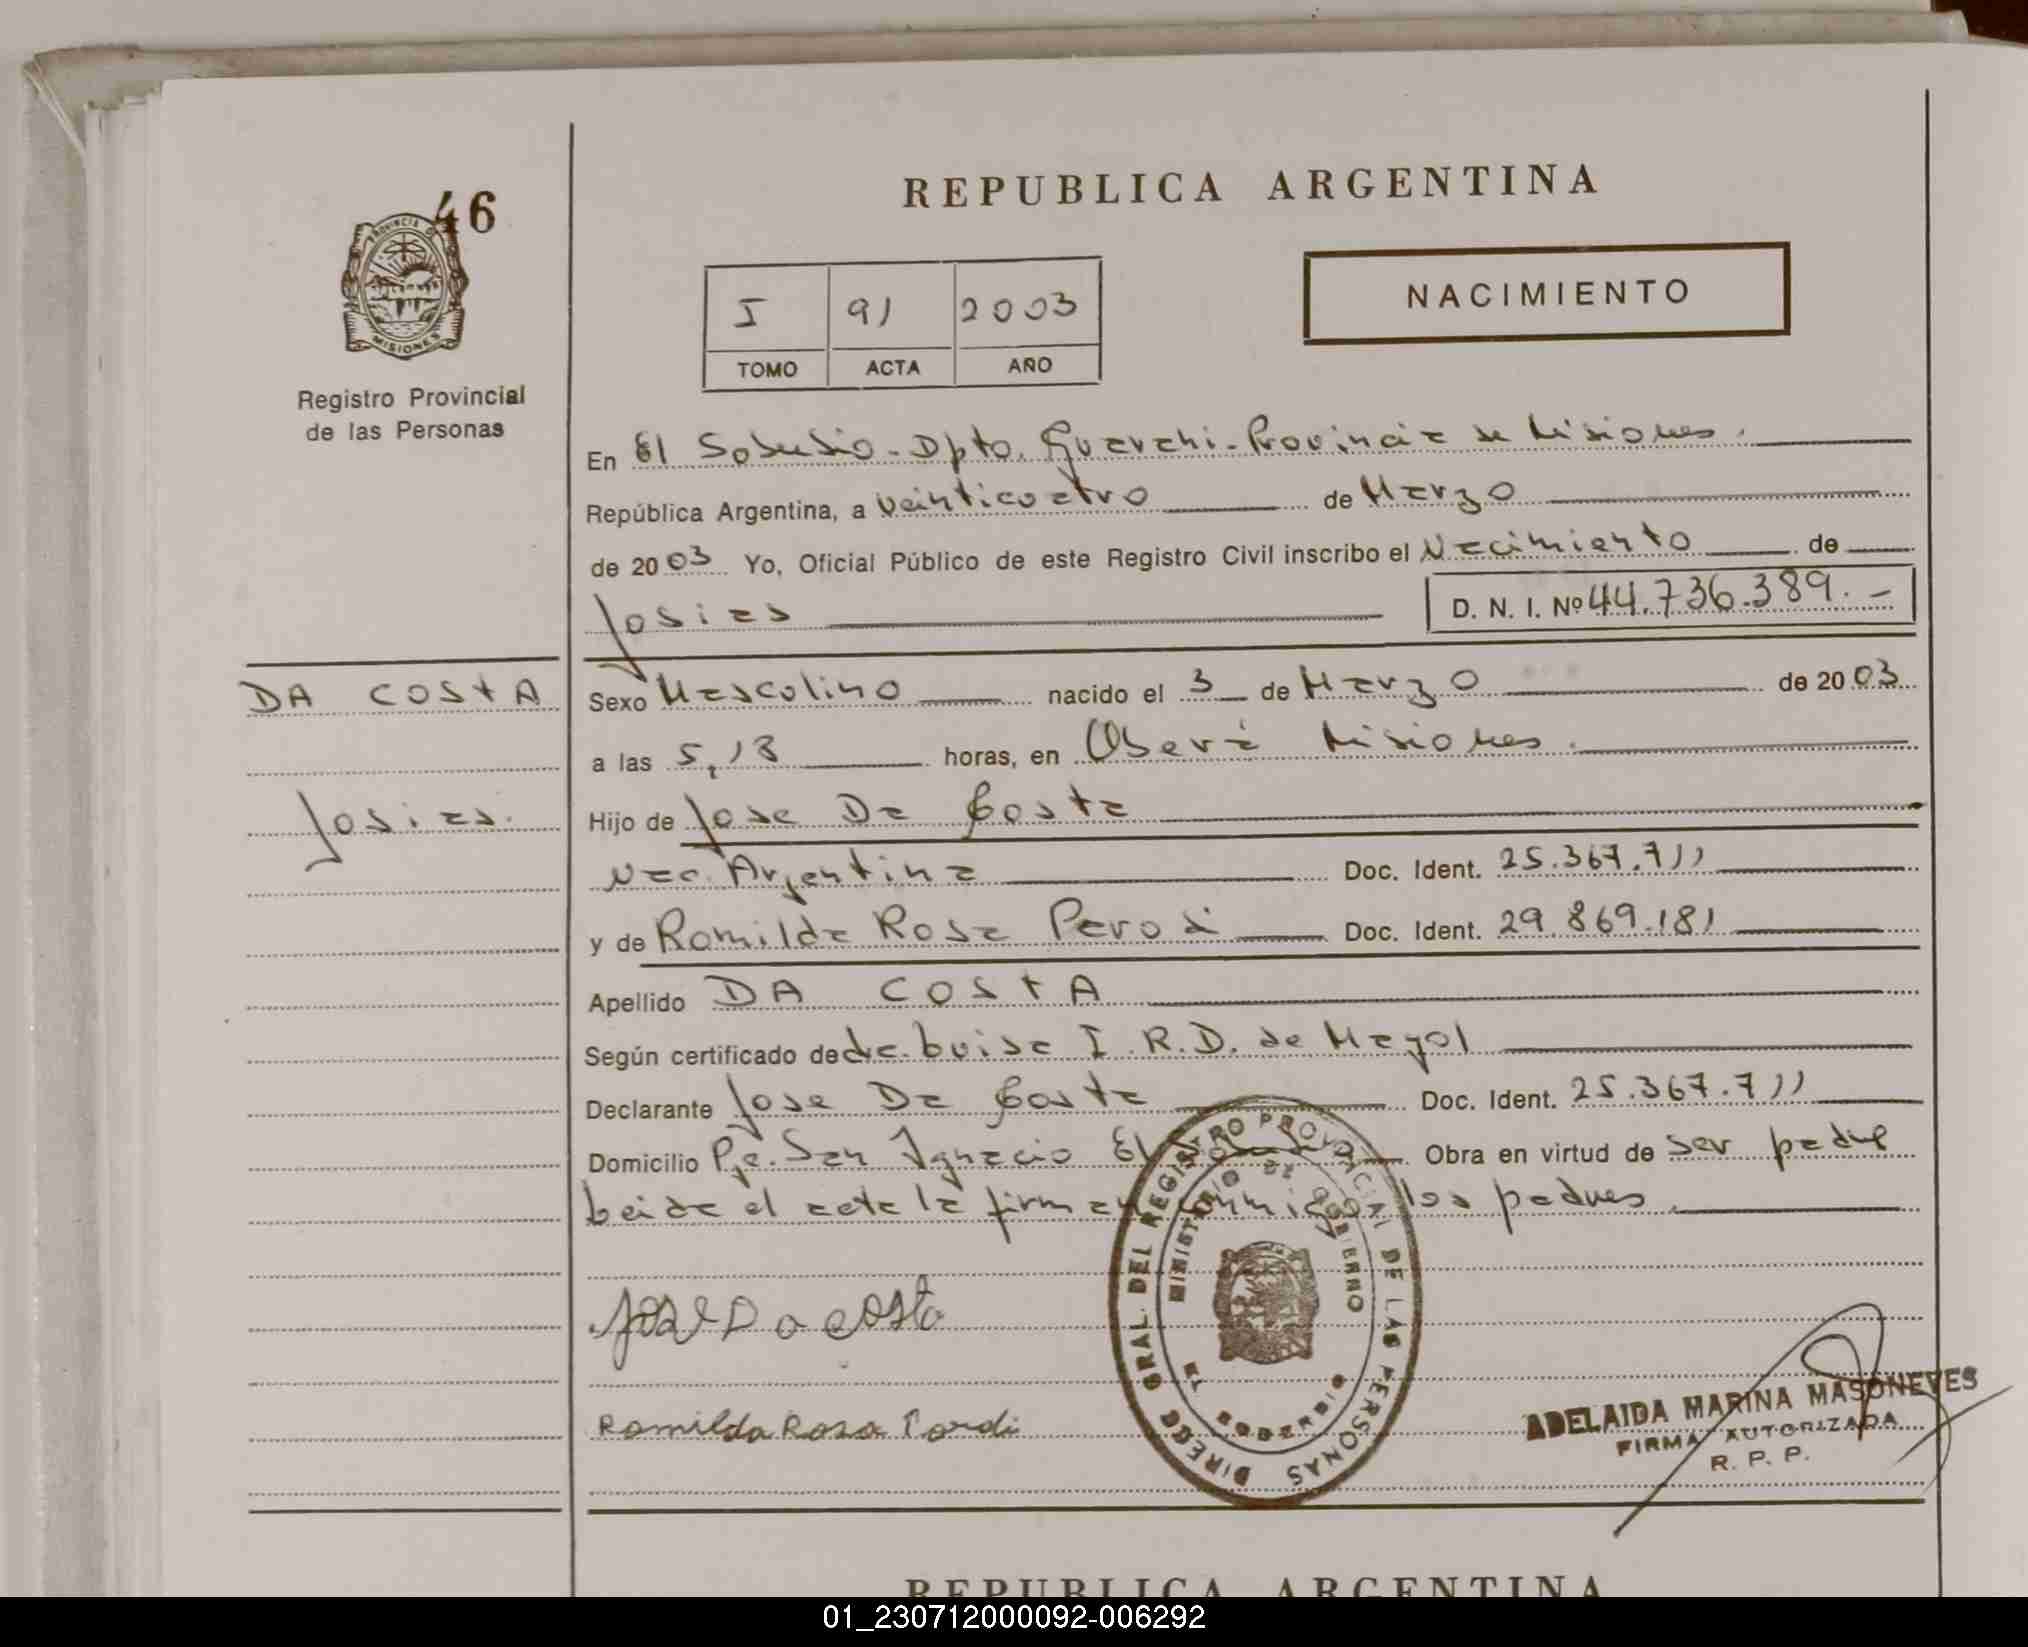 46
PROVINCIA DE
MISIONES
Registro Provincial
de las Personas
REPUBLICA ARGENTINA
I 91 2003
TOMO ACTA AÑO
NACIMIENTO
En El Soberbio - Dpto. Guarani - Provincia de Misiones.
República Argentina, a veinticuatro de Marzo
de 2003 Yo, Oficial Público de este Registro Civil inscribo el Nacimiento de
Josias D. N. I. Nº 44.736.389.-
DA COSTA Sexo Masculino nacido el 3 de Marzo de 2003
a las 5,18 horas, en Oberá Misiones.
Josias. Hijo de Jose Da Costa
Nac. Argentina Doc. Ident. 25.367.711
y de Romilda Rosa Perodi Doc. Ident. 29.869.181
Apellido DA COSTA
Según certificado de dra. Luisa I. R. D. de Mayol
Declarante Jose Da Costa Doc. Ident. 25.367.711
Domicilio Pje. San Ignacio El Obra en virtud de ser padre
Leida el acta la firman conmigo los padres.
Jose Da costa
Romilda Rosa
DIRECC. GRAL. DEL REGISTRO PROVINCIAL DE LAS PERSONAS
MINISTERIO DE GOBIERNO
EL SOBERBIO
ADELAIDA MARINA MASONEVES
FIRMA AUTORIZADA
R. P. P.
REPUBLICA ARGENTINA
01_230712000092-006292